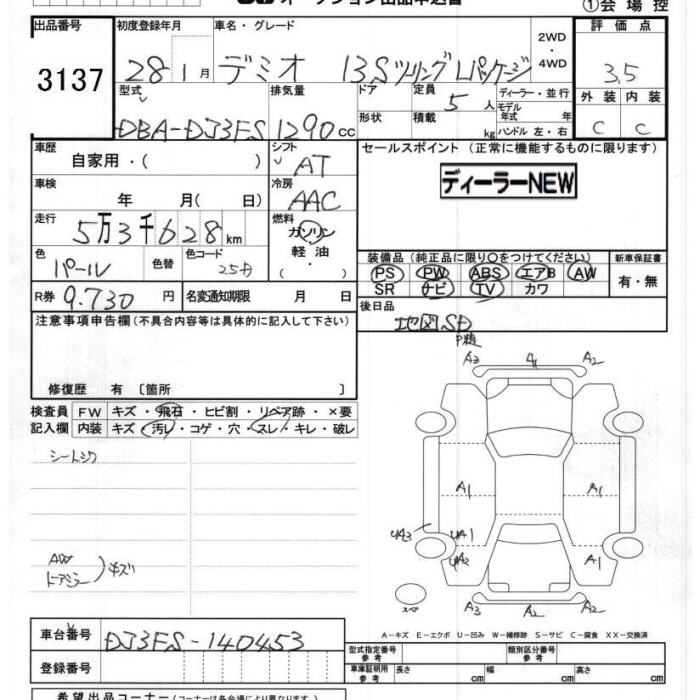 ①会場控
出品番号 初度登録年月 車名・グレード 評価点
3137 28年1月 デミオ 13Sツーリング Lパッケージ 2WD・4WD 3.5
型式 排気量 ドア 定員 5人 ディーラー・並行 外装 内装
DBA-DJ3FS 1290cc 形状 積載 kg モデル年式 年 ハンドル 左・右 C C
車歴 シフト セールスポイント (正常に機能するものに限ります)
自家用・( ) AT
車検 冷房 ディーラーNEW
年 月( 日) AAC
走行 燃料
5万3千628km ガソリン
軽油
・( )
色 色替 色コード 装備品 (純正品に限り○をつけてください) 新車保証書
パール 25D PS PW ABS エアB AW 有・無
SR ナビ TV カワ
R券 9.730円 名変通知期限 月 日 後日品
地図SD
注意事項申告欄(不具合内容等は具体的に記入して下さい)
修復歴 有 〔箇所 〕
検査員 FW キズ・飛石・ヒビ割・リペア跡・×要
記入欄 内装 キズ・汚レ・コゲ・穴・スレ・キレ・破レ
A3 A1 A2
A1 A1
UA3 UA1
UA2 A1
A3 A2 A2
スペア
シートシワ
AW
ドアミラー )キズ
A-キズ E-エクボ U-凹み W-補修跡 S-サビ C-腐食 XX-交換済
車台番号 DJ3FS-140453
登録番号
型式指定番号 参考 類別区分番号 参考
車庫証明用 参考 長さ cm 幅 cm 高さ cm
希望出品コーナー